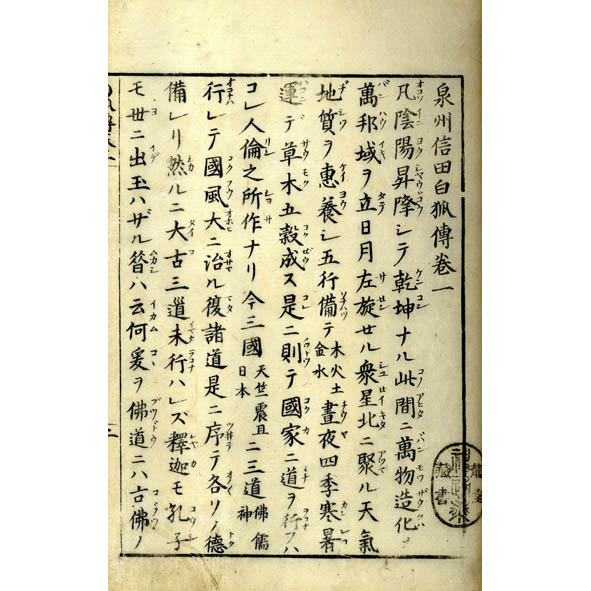 泉州信田白狐傳卷一
凡陰陽昇降シテ乾坤ナル此間ニ萬物造化
萬邦域ヲ立日月左旋せル衆星北ニ聚ル天氣
地質ヲ惠養シ五行備テ木火土金水晝夜四季寒暑
運デ草木五穀成ス是ニ則テ國家ニ道ヲ行フハ
コレ人倫之所作ナリ今三國天竺震旦日本ニ三道佛儒神
行レテ國風大ニ治ル復諸道是ニ序テ各リノ德
備レリ然ルニ大古三道未行ハレズ釋迦モ孔子
モ世ニ出玉ハザル昝ハ云何爰ヲ佛道ニハ古佛ノ